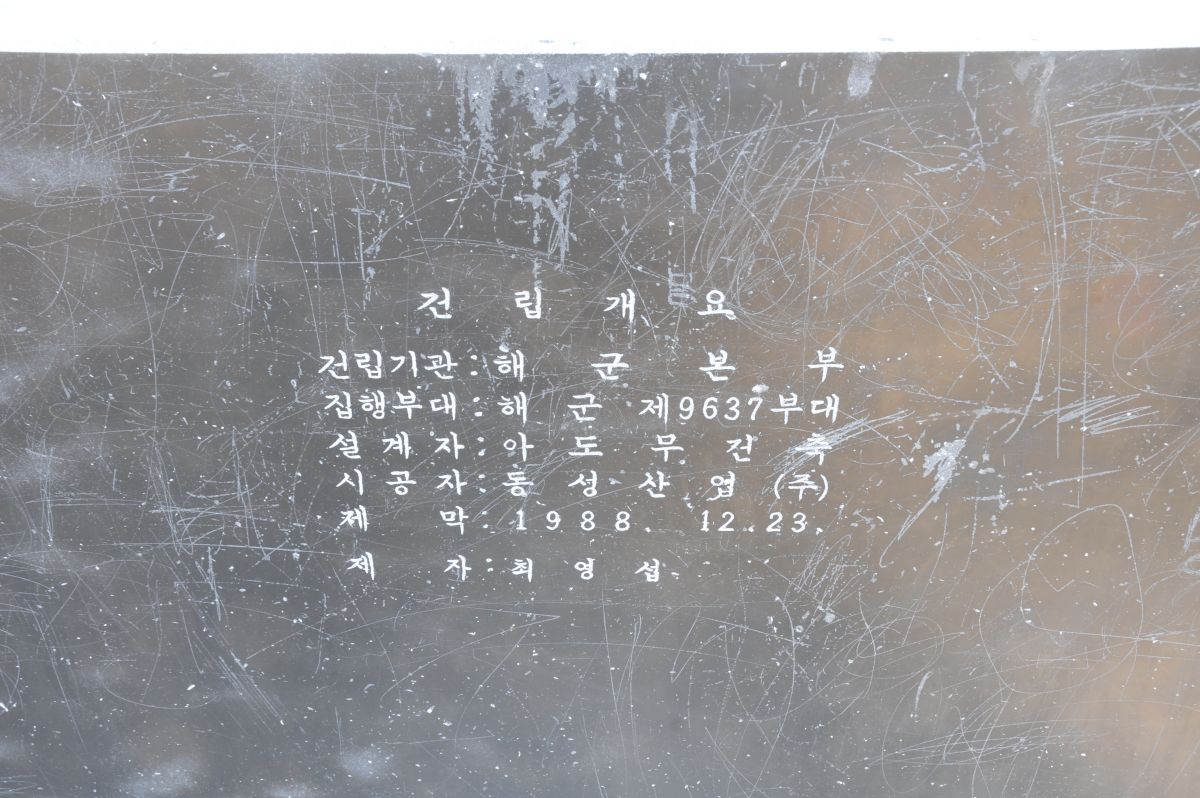 건 립 개 요
건립기관 : 해 군 본 부
집행부대 : 해 군 제9637부대
설 계 자 : 아 도 무 건 축
시 공 자 : 동 성 산 업 (주)
제 막 : 1988. 12. 23.
제 자 : 최 영 섭